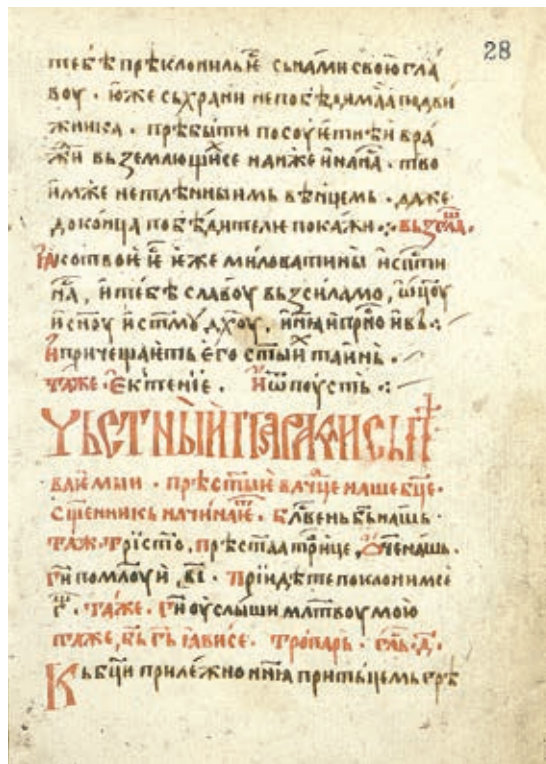 28
тебѣ прѣклониль ѥ҆ сь нами свою гла
воу · юже сьхрани непобѣдима подви
жника · прѣбыти
жїи вьземлющи се
имже нетлѣнныимь вѣнцемь · даже
до конца побѣдителꙗ покажи ⁘ вьзгла
ꙗко твоѥ ѥ҆ и҆же миловати ны и҆ сп҃ти
на҃, и҆ тебѣ славоу вьзсиламо, ѡ҆ц҃оу
и҆ сн҃оу и҆ ст҃мⷹ дх҃оу, и҆ нн҃ꙗ и҆ прⷭ҇но и҆ вь ⁘
И҆ причещаѥть ѥго ст҃ыи таинь ·
таже · Ѥктенїѥ · И҆ ѿпоусть ⁘
Чьстный параклись п
ваѥмыи · прѣст҃ыѥ влⷣчце наше бц҃е ·
Сщ҃енникь начинаѥⷮ · Бл҃вень бь҃ нашь ·
Таж · Трїст҃о, прѣст҃аа трⷪ҇ице, Ѻ҆ч҃е нашь ·
Гⷭ҇и помлоуи, в҃і · Прїидѣте поклонимсе
г҃ · Таже · Гⷭ҇и оуслыши млт҃воу мою
таже, бь҃ гь҃ ꙗвисе · тропарь · глⷭ҇ь · д҃ ·
Кь бц҃и прилѣжно нн҃ꙗ притьцемь грѣ